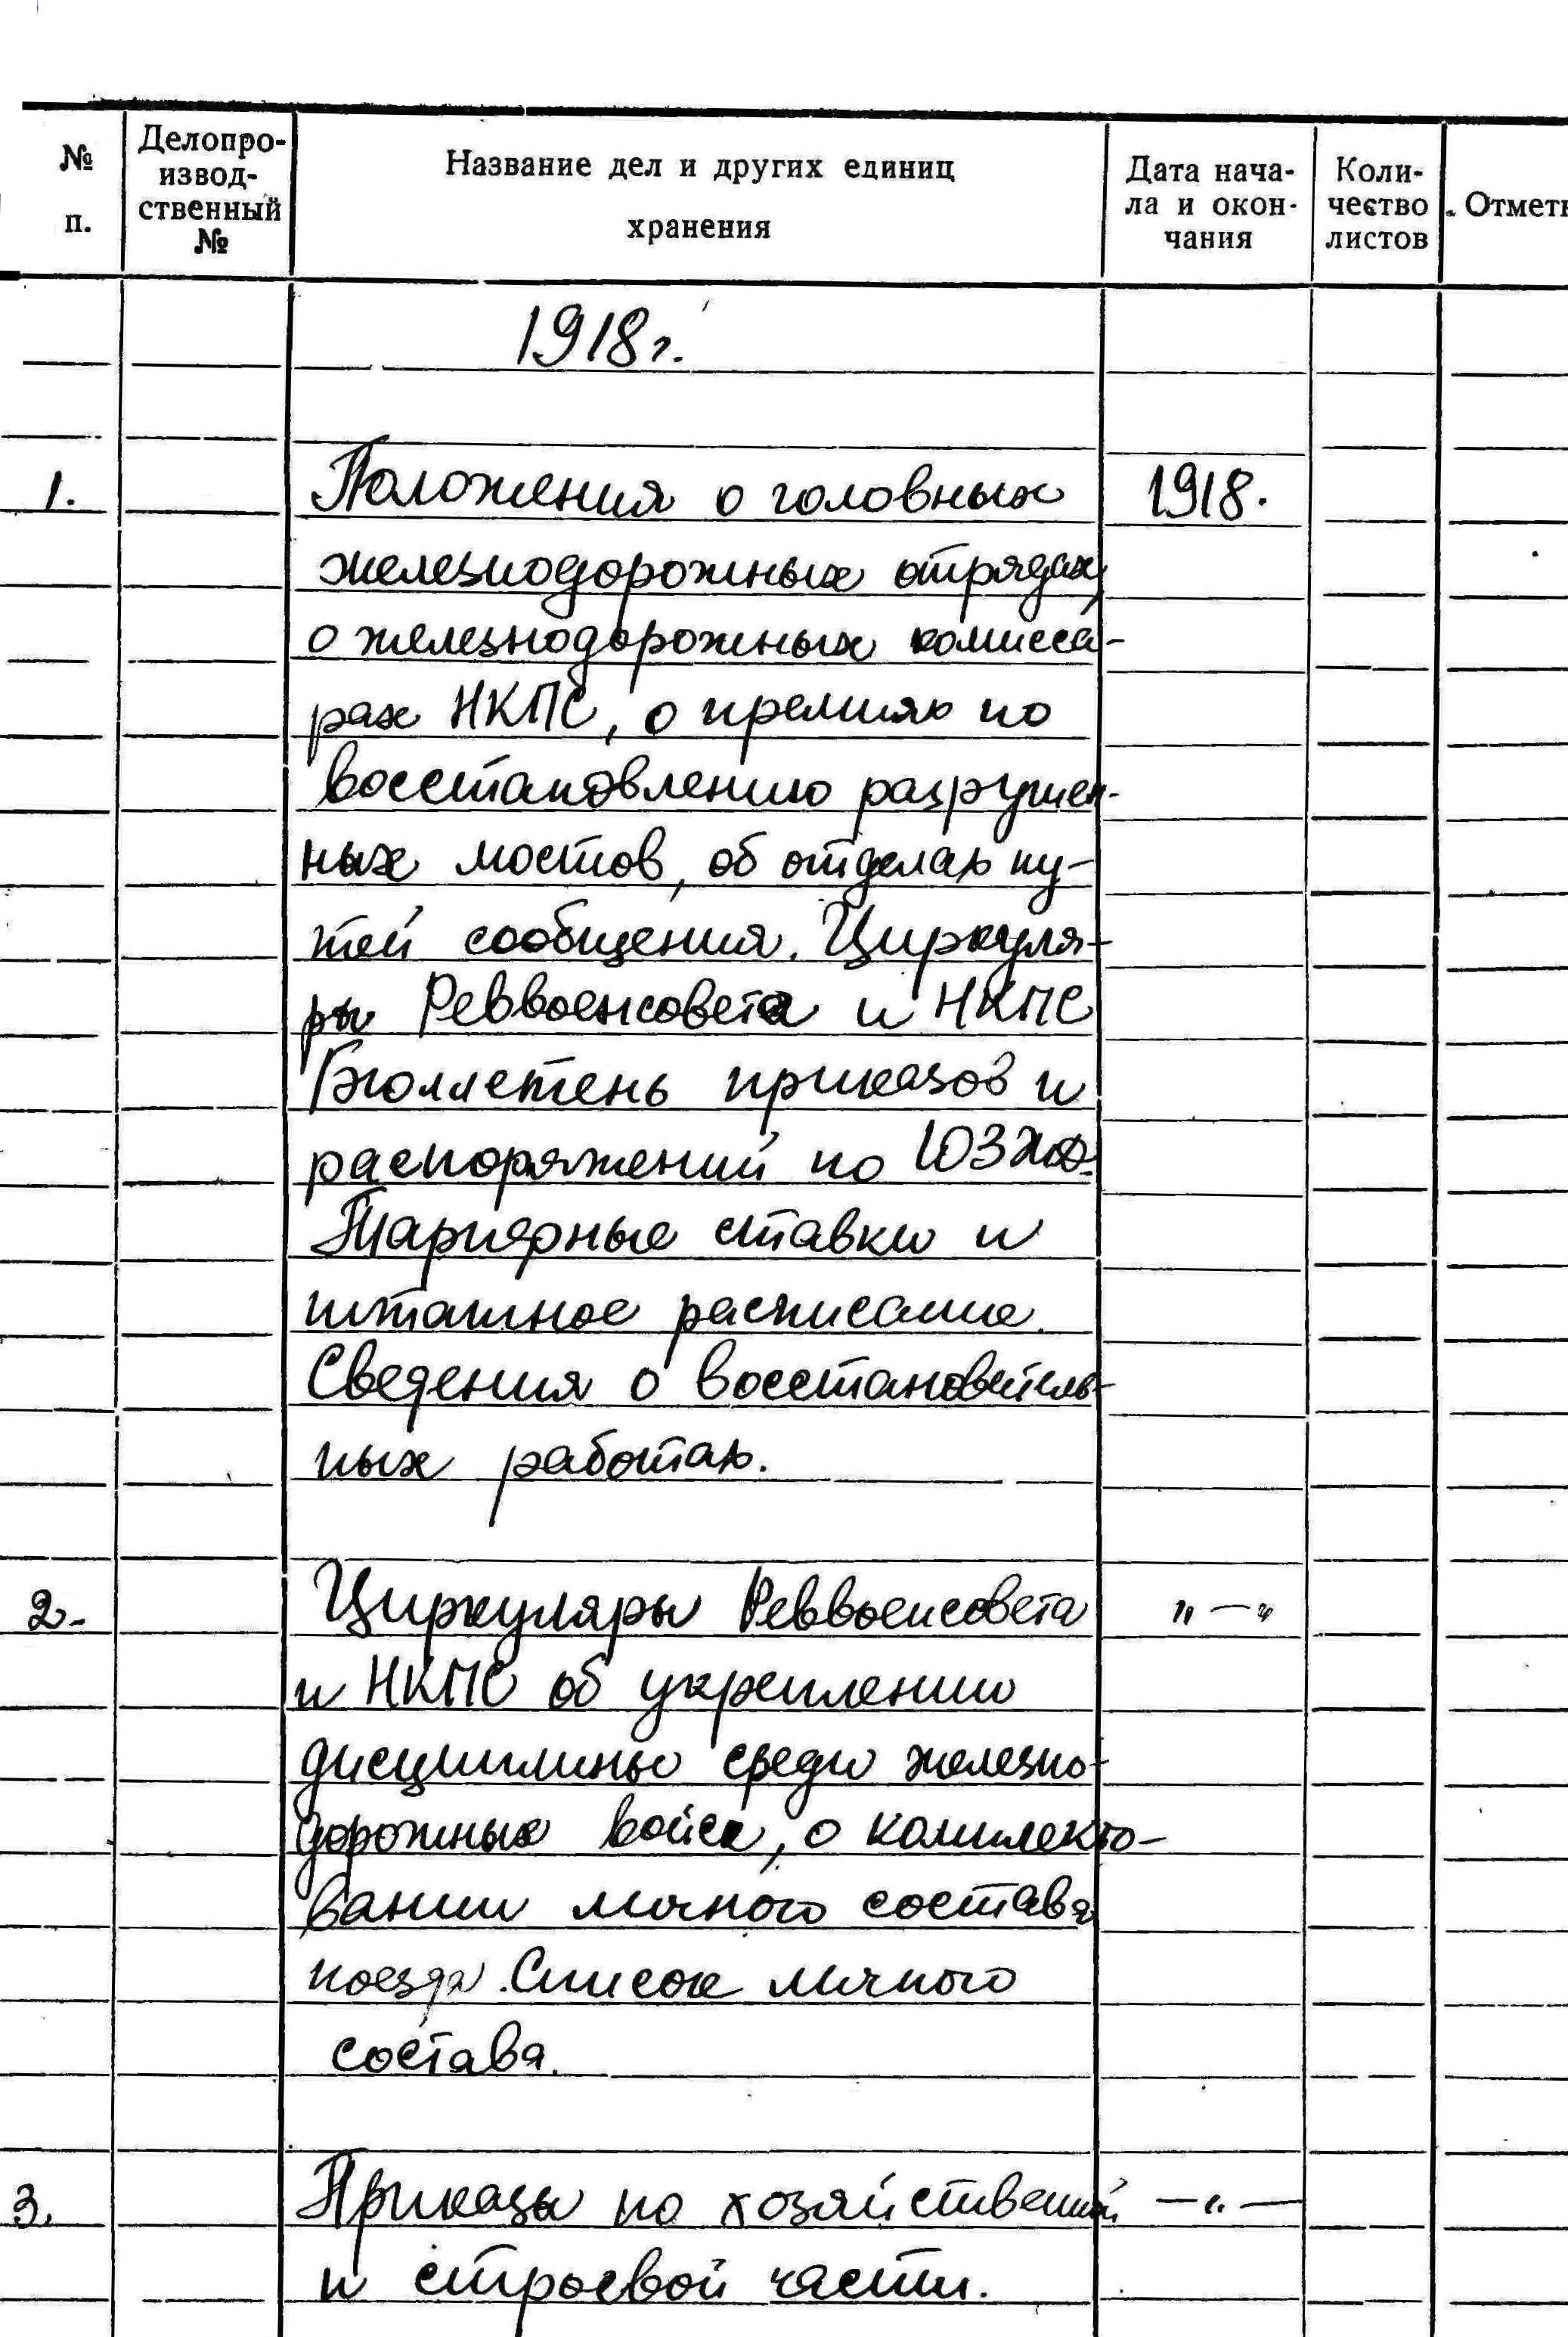 № п.
Делопро-
извод-
ственный
№
Название дел и других единиц
хранения
Дата нача-
ла и окон-
чания
Коли-
чество
листов
Отметк
1918 г.
1. Положения о головных 1918.
железнодорожных отрядах,
о железнодорожных комисса-
рах НКПС, о премиях по
восстановлению разрушен-
ных мостов, об отделах пу-
тей сообщения. Циркуля-
ры Реввоенсовета и НКПС
Бюллетень приказов и
распоряжений по ЮЗЖД.
Тарифные ставки и
штатное расписание.
Сведения о восстановитель-
ных работах.
2. Циркуляры Реввоенсовета „ — „
и НКПС об укреплении
дисциплины среди железно-
дорожных войск, о комплекто-
вании личного состава
поезда. Список личного
состава.
3. Приказы по хозяйственной — „ —
и строевой части.